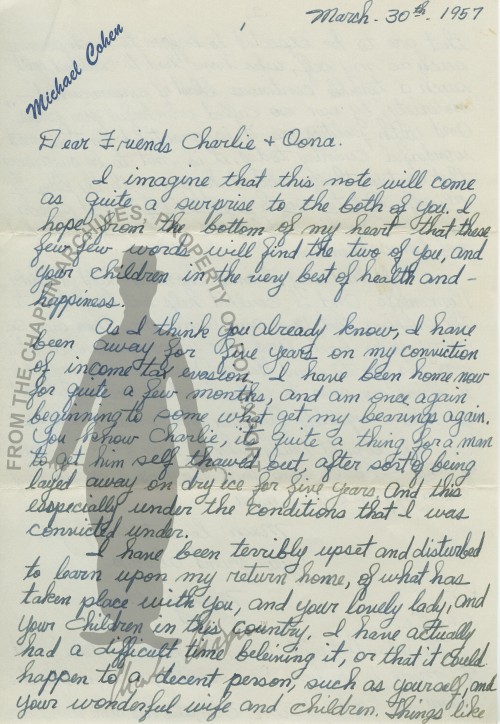 March - 30th - 1957
Michael Cohen
Dear Friends Charlie + Oona.
I imagine that this note will come
as quite a surprise to the both of you. I
hope from the bottom of my heart that these
few few words will find the two of you, and
your children in the very best of health and -
happiness.
As I think you already know, I have
been away for five years on my conviction
of income tax evasion. I have been home now
for quite a few months, and am once again
beginning to some what get my bearings again.
You know Charlie, its quite a thing for a man
to get him self thawed out, after sort of being
layed away on dry ice for five years. And this
especially under the conditions that I was
convicted under.
I have been terribly upset and disturbed
to learn upon my return home, of what has
taken place with you, and your lovely lady, and
your children in this country. I have actually
had a difficult time beleining it, or that it could
happen to a decent person, such as yourself, and
your wonderful wife and children. Things like
FROM THE CHAPLIN ARCHIVES, PROPERTY OF